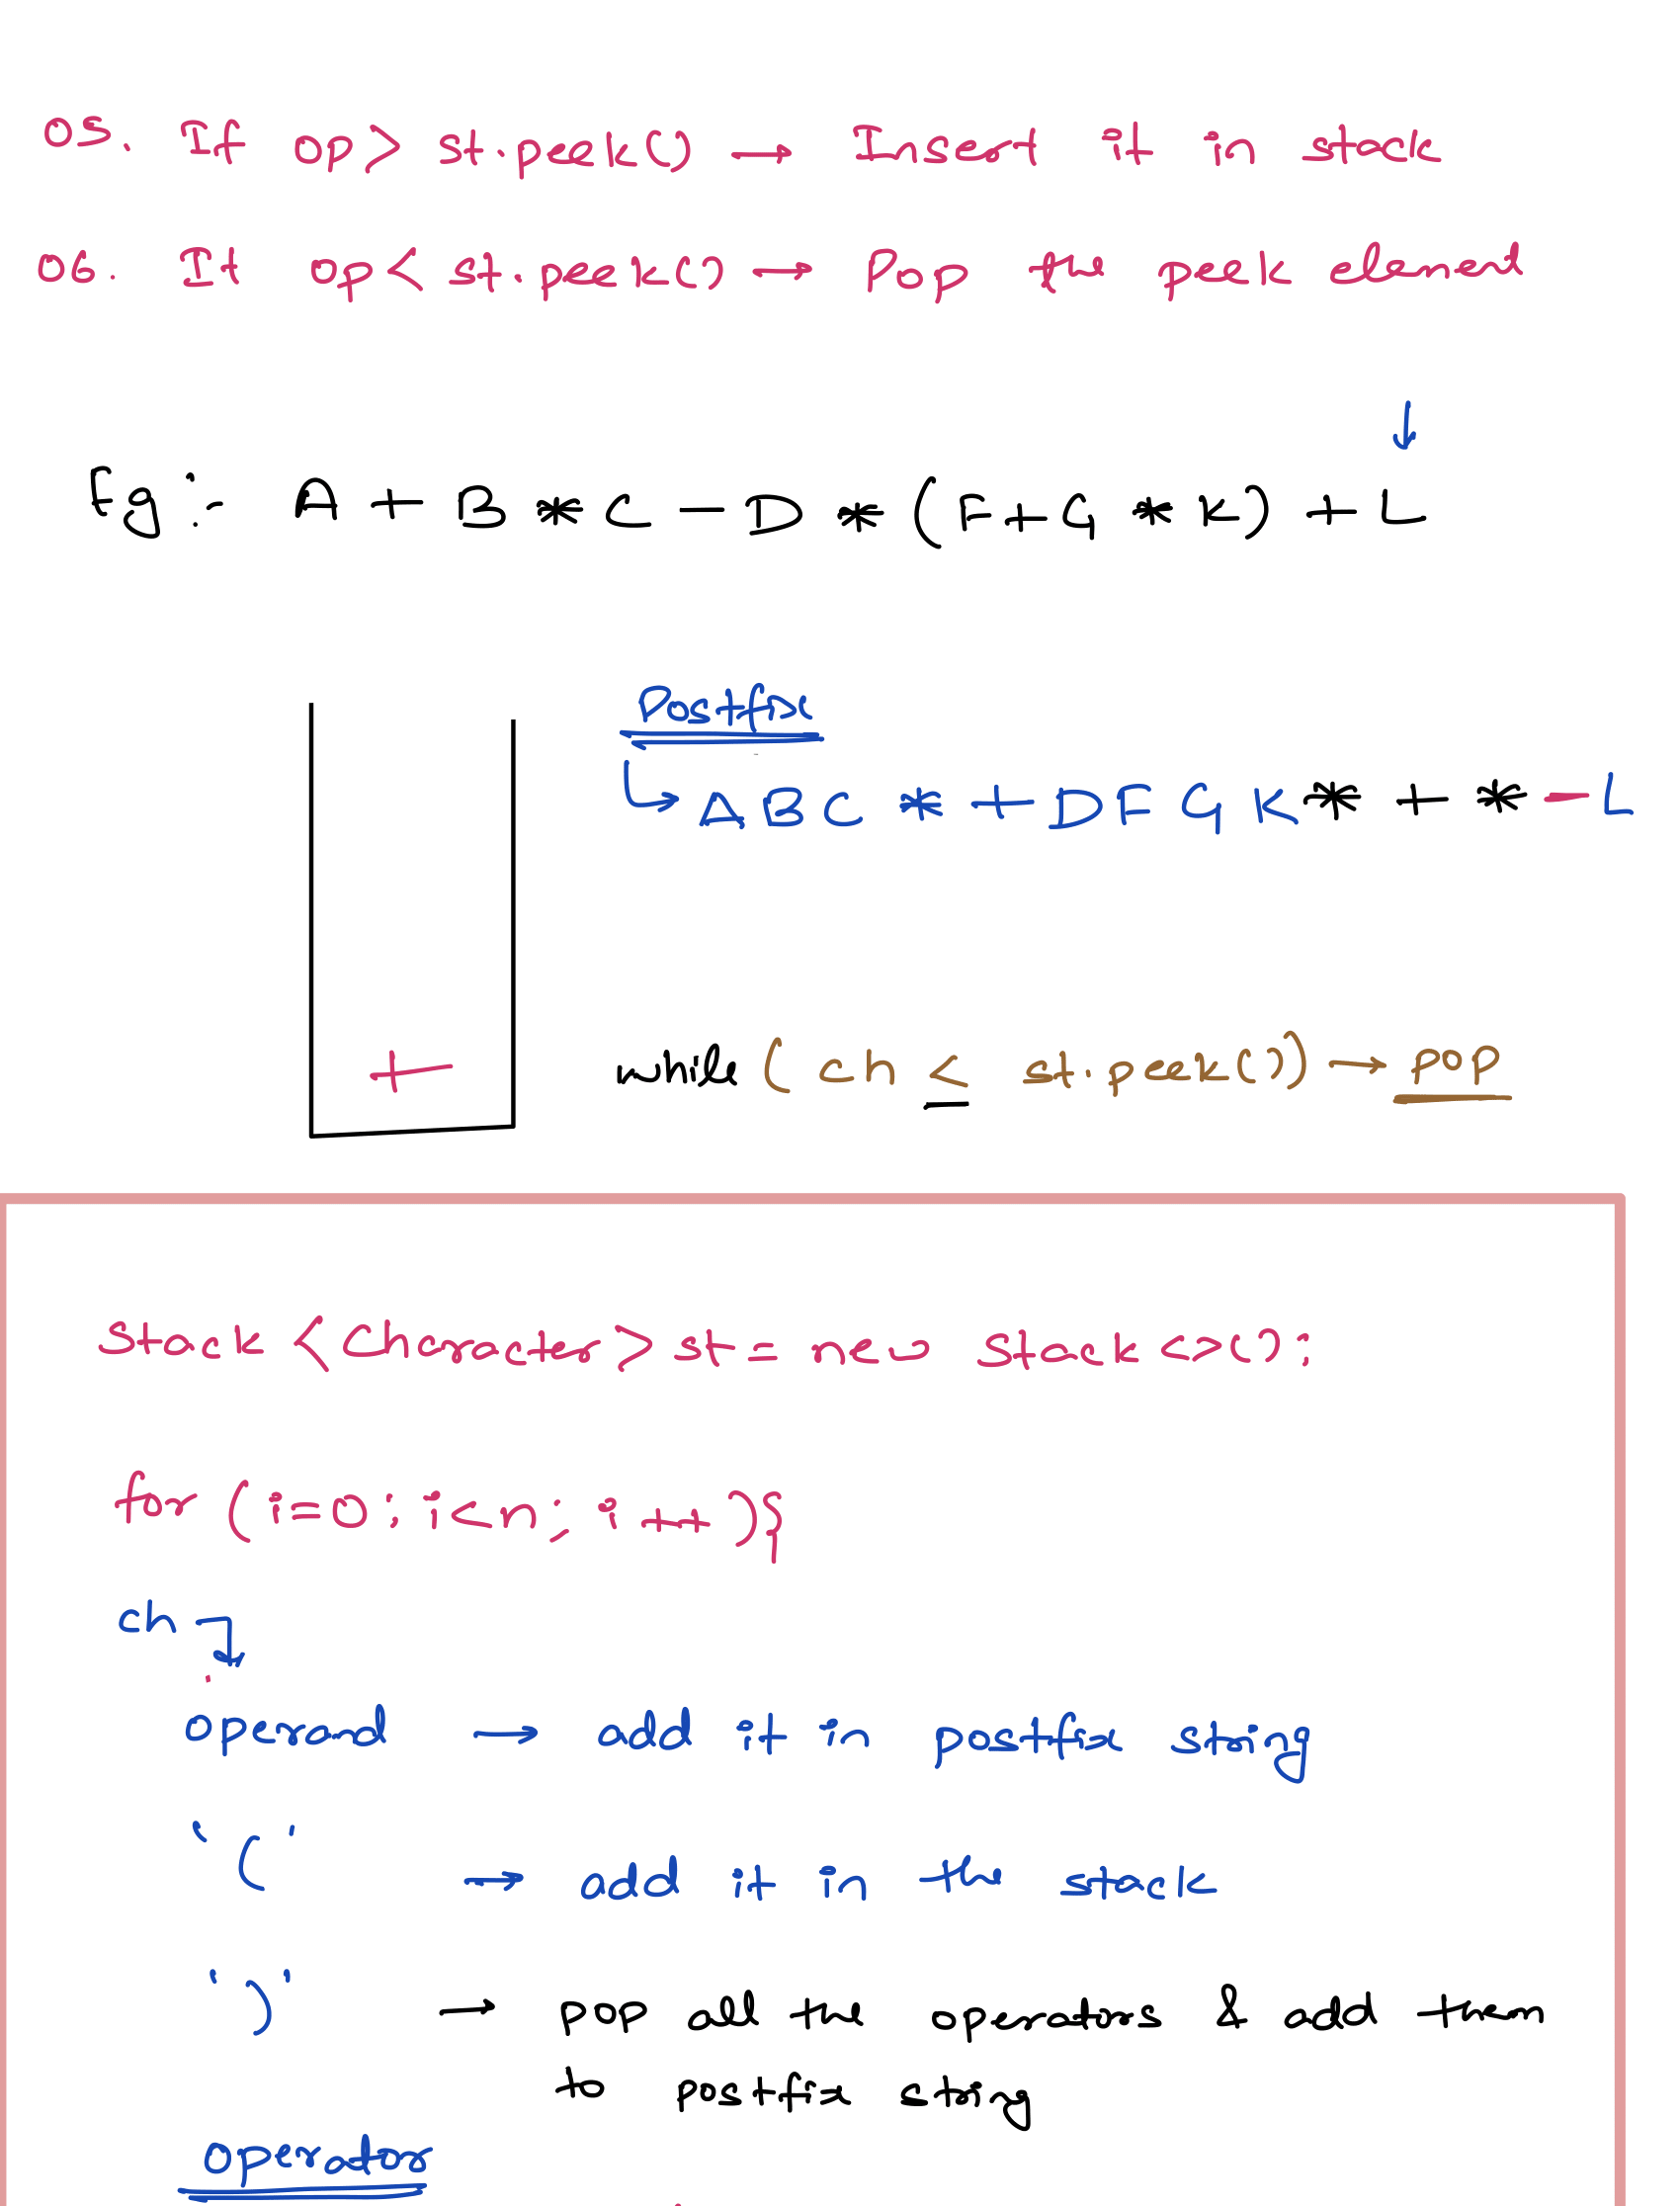 05. If op > st.peek() → Insert it in stack
06. If op < st.peek() → Pop the peek elemed
Eg :- A + B * C - D * (F + G * K) + L
Postfix
↳ A B C * + D F G K * + * - L
+
while ( ch ≤ st.peek()) → pop
Stack <Character> st = new Stack<>();
for (i=0; i<n; i++){
ch
operand → add it in postfix string
'(' → add it in the stack
')' → pop all the operators & add them
to postfix string
operator